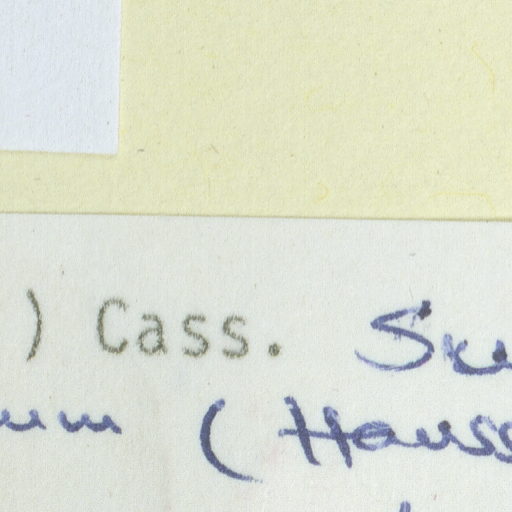 ) Cass. Sku
um (Hauss